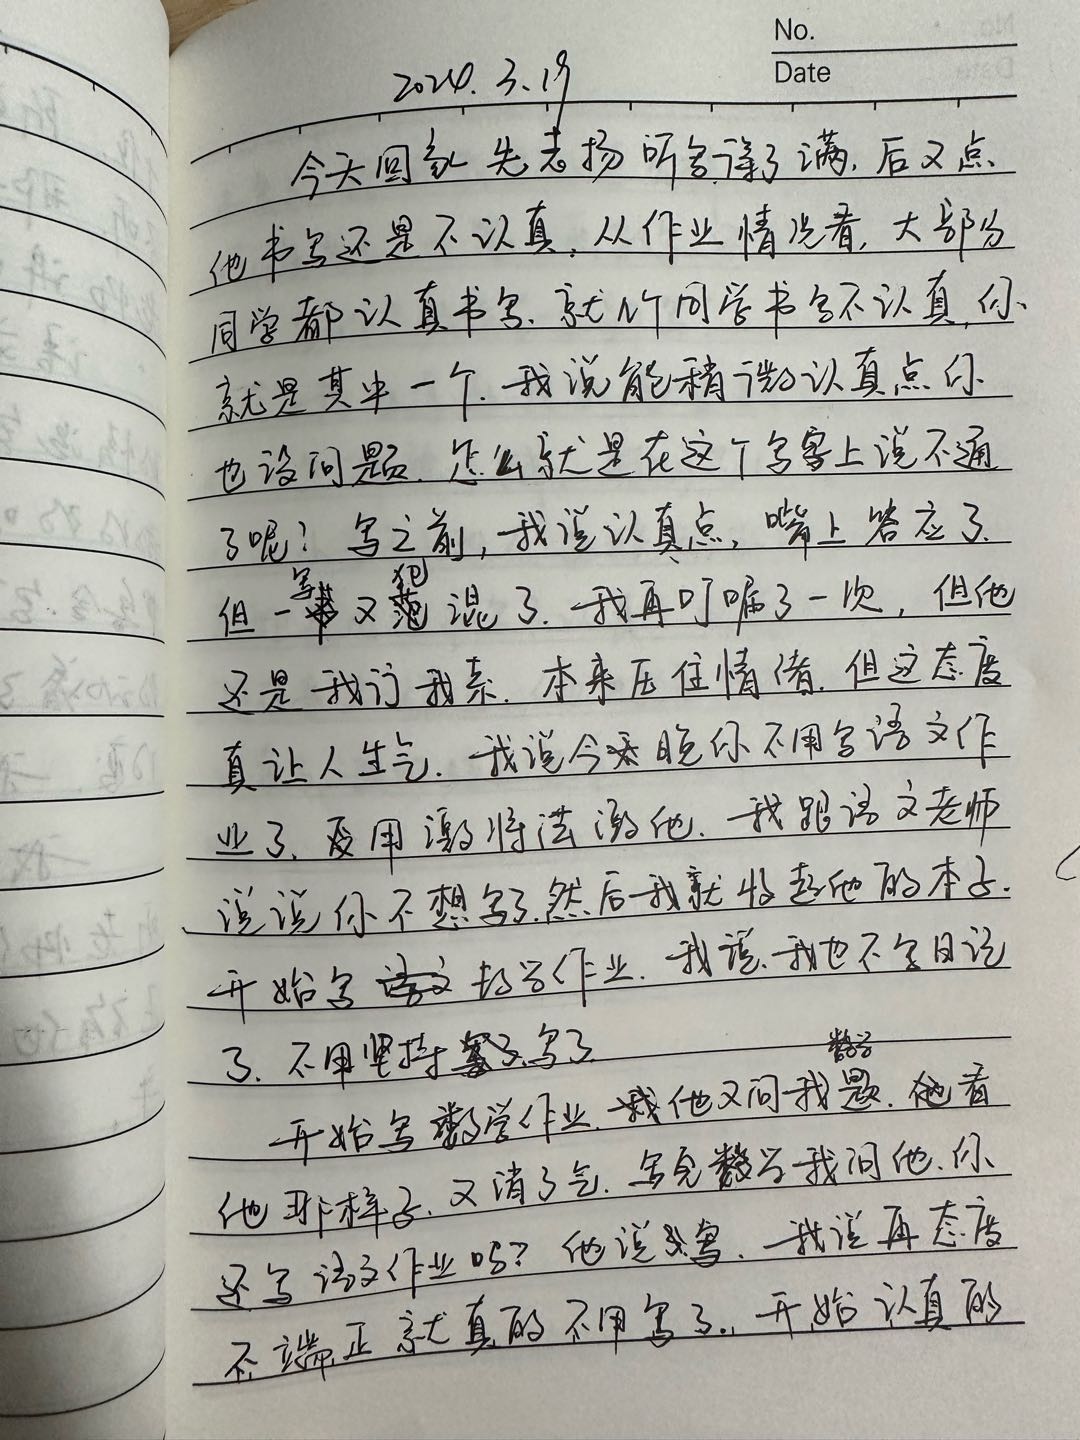 No.
Date
2024.3.19
今天回家先表扬听写得了满.后又点
他书写还是不认真.从作业情况看,大部分
同学都认真书写.就几个同学书写不认真,你
就是其中一个.我说能稍微认真点你
也没问题.怎么就是在这个写字上说不通
了呢?写之前,我说认真点,嘴上答应了.
但一写又犯混了.我再叮嘱了一次,但他
还是我行我素.本来压住情绪.但这态度
真让人生气.我说今晚你不用写语文作
业了.反用激将法激他.我跟语文老师
说说你不想写了.然后我就收起他的本子.
开始写数学作业.我说.我也不写日记
了.不用坚持写了
开始写数学作业.他又问我数学题.他看
他那样子.又消了气.写完数学我问他.你
还写语文作业吗?他说写.我说再态度
不端正就真的不用写了.开始认真的